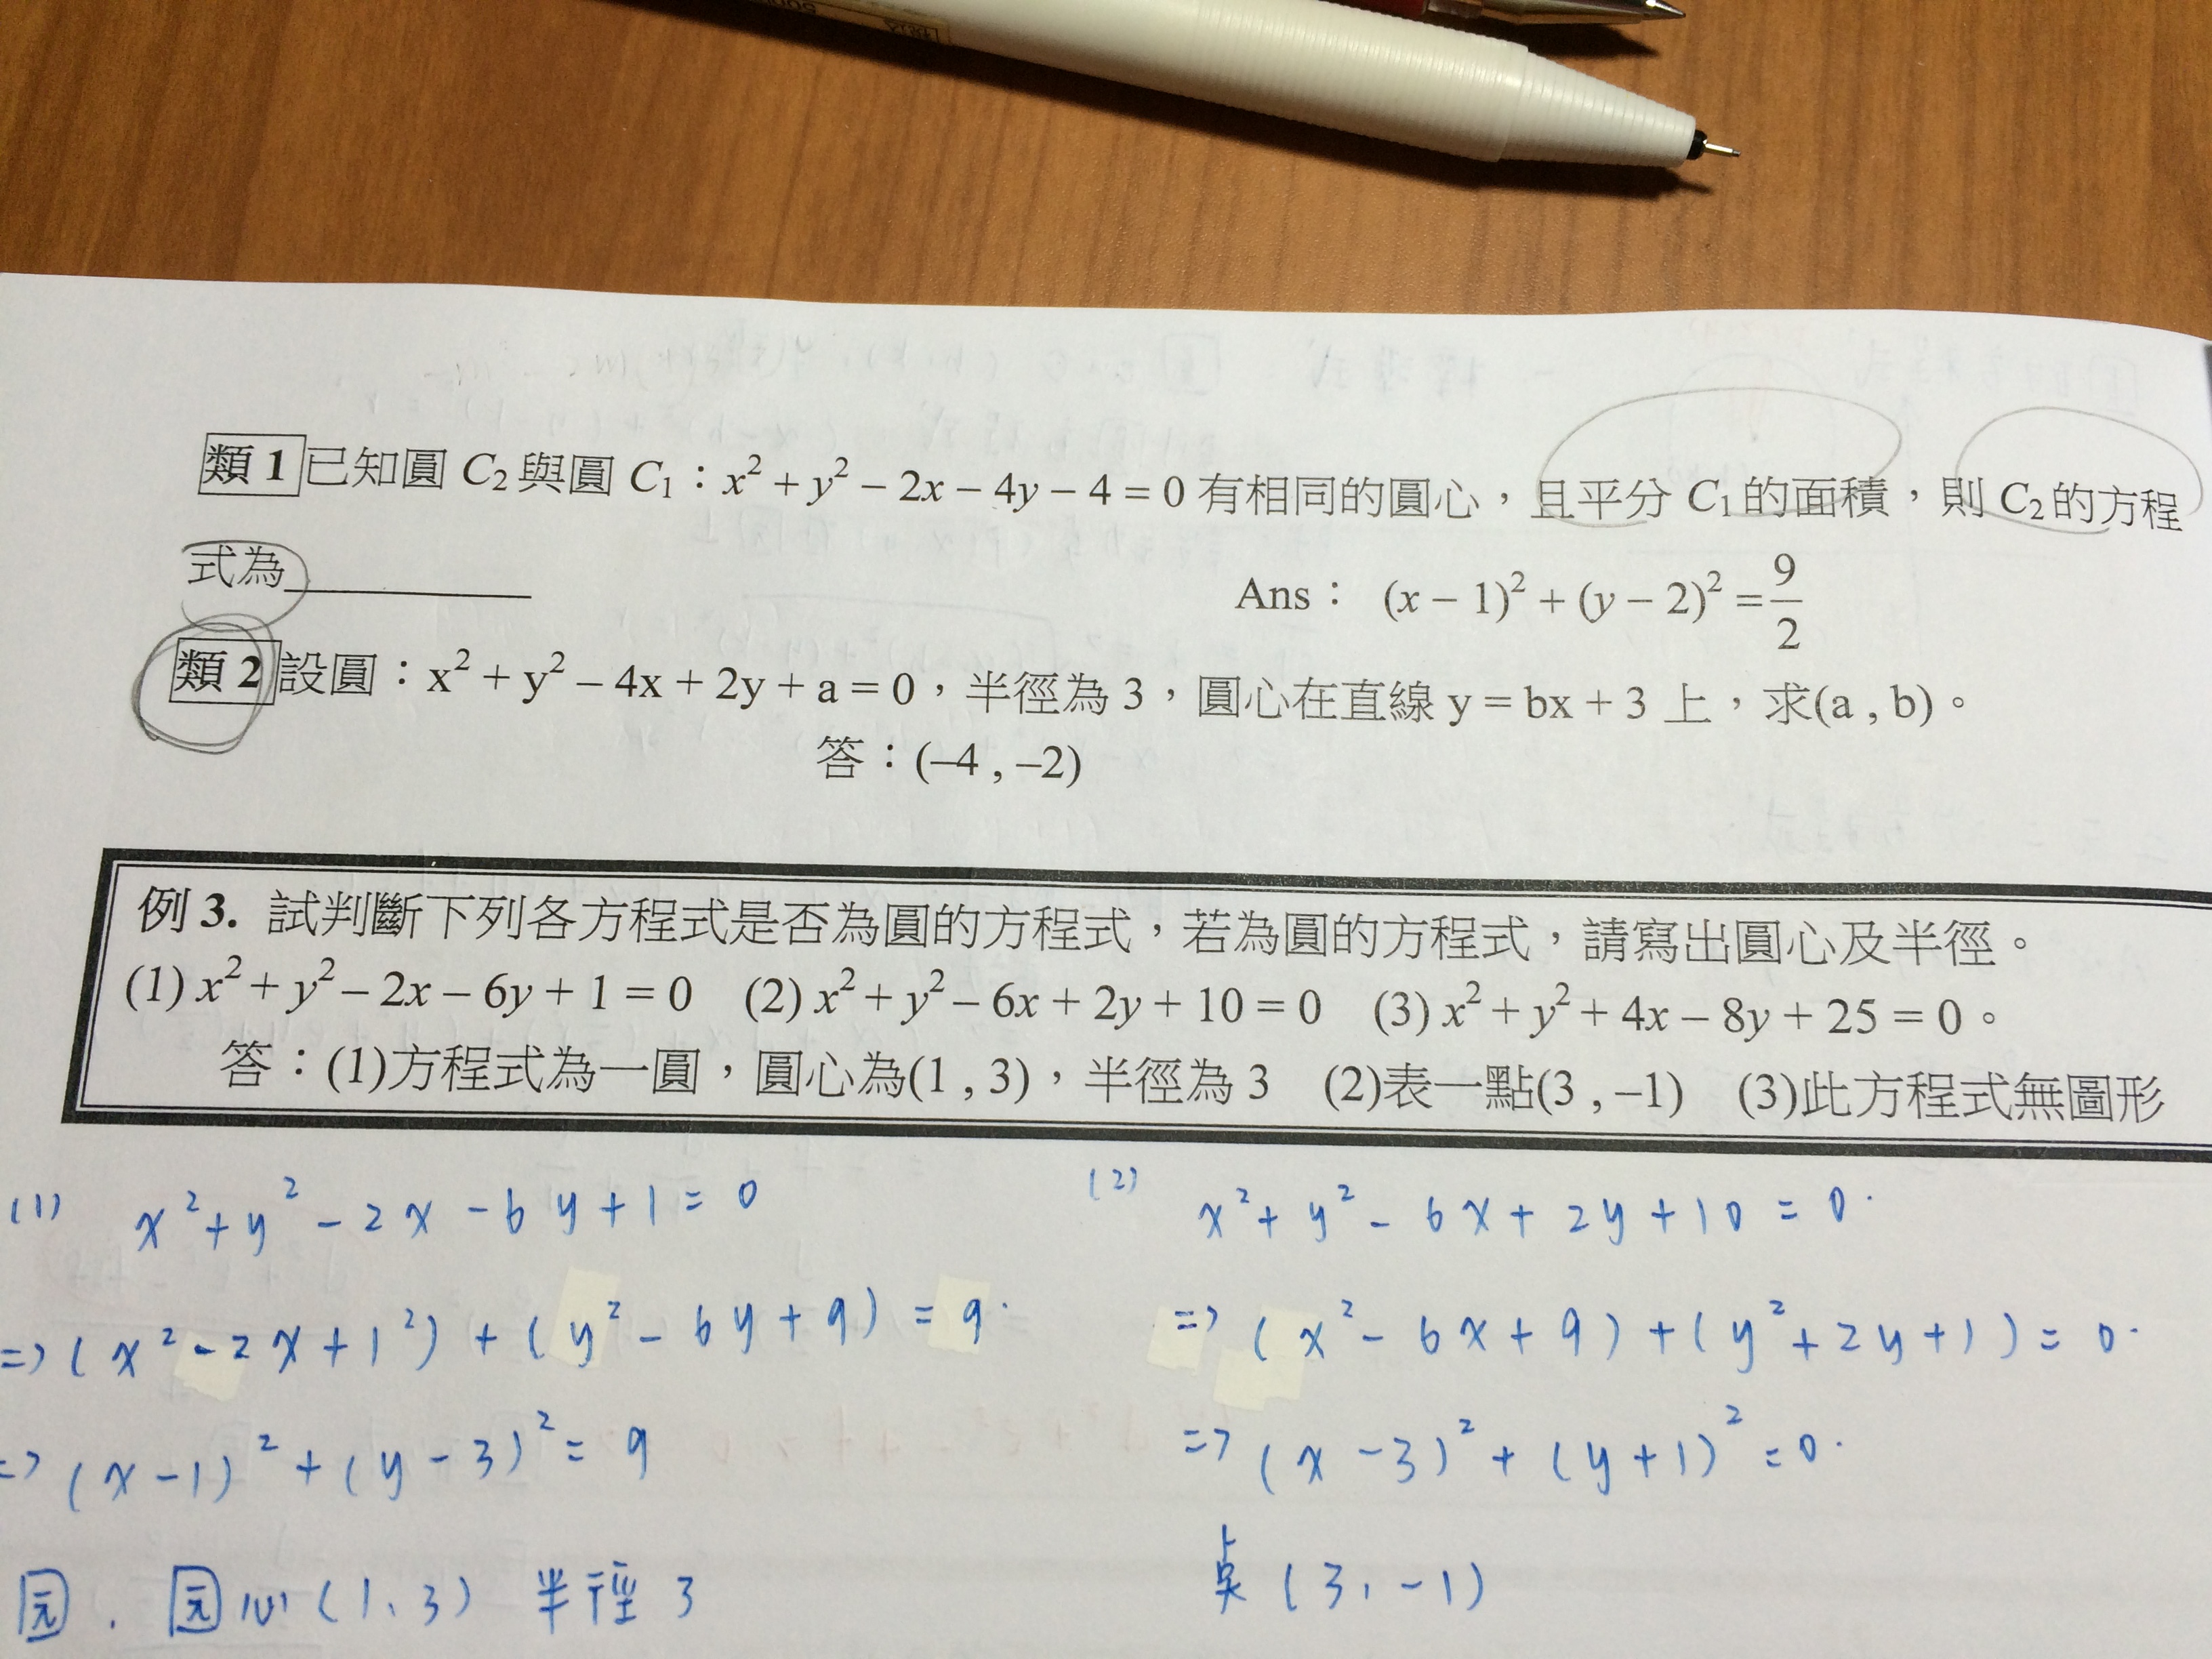 類1 已知圓 C₂與圓 C₁：x² + y² − 2x − 4y − 4 = 0 有相同的圓心，且平分 C₁的面積，則 C₂的方程
式為__________ Ans： (x − 1)² + (y − 2)² = 9/2
類2 設圓：x² + y² – 4x + 2y + a = 0，半徑為 3，圓心在直線 y = bx + 3 上，求(a , b)。
答：(–4 , –2)
例 3. 試判斷下列各方程式是否為圓的方程式，若為圓的方程式，請寫出圓心及半徑。
(1) x² + y² – 2x – 6y + 1 = 0 (2) x² + y² – 6x + 2y + 10 = 0 (3) x² + y² + 4x – 8y + 25 = 0。
答：(1)方程式為一圓，圓心為(1 , 3)，半徑為 3 (2)表一點(3 , –1) (3)此方程式無圖形
(1) x² + y² - 2x - 6y + 1 = 0
=> (x² - 2x + 1²) + (y² - 6y + 9) = 9.
=> (x - 1)² + (y - 3)² = 9
园. 园心(1、3) 半徑 3
(2) x² + y² - 6x + 2y + 10 = 0.
=> (x² - 6x + 9) + (y² + 2y + 1) = 0.
=> (x - 3)² + (y + 1)² = 0.
(3, -1)